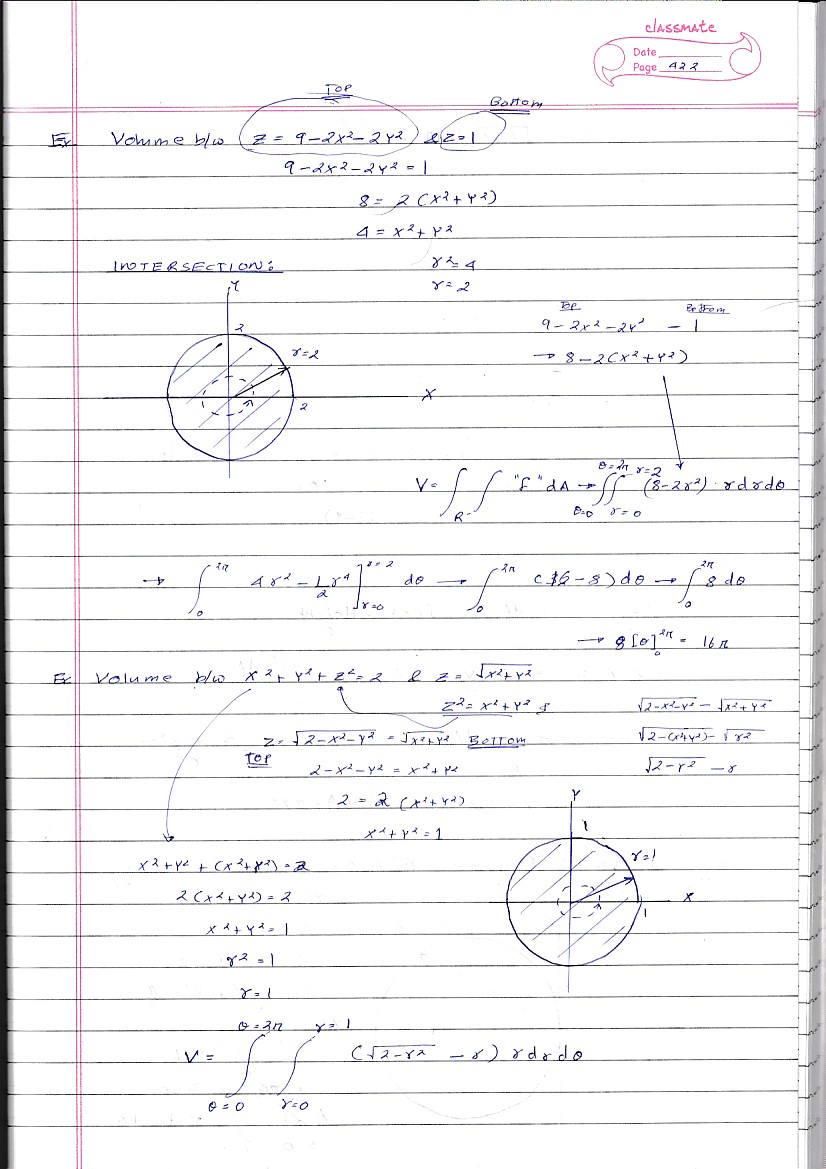 classmate
Date
Page 422
TOP
Bottom
Ex Volume b/w z = 9-2x²-2y² & z=1
9-2x²-2y² = 1
8 = 2(x²+y²)
4 = x²+y²
INTERSECTION:
r²=4
r=2
Y
2
r=2
X
2
Top Bottom
9-2x²-2y² - 1
→ 8-2(x²+y²)
V= ∫∫_R "f" dA → ∫_{θ=0}^{θ=2π} ∫_{r=0}^{r=2} (8-2r²)·rdrdθ
→ ∫_0^{2π} 4r² - 1/2 r⁴ ]_{r=0}^{r=2} dθ → ∫_0^{2π} (16-8)dθ → ∫_0^{2π} 8 dθ
→ 8[θ]_0^{2π} = 16π
Ex Volume b/w x²+y²+z²=2 & z= √(x²+y²)
z²=x²+y²
√(2-x²-y²) - √(x²+y²)
z= √(2-x²-y²) = √(x²+y²) BOTTOM
TOP
√(2-(x²+y²)) - √(r²)
2-x²-y² = x²+y²
√(2-r²) - r
2 = 2(x²+y²)
x²+y²=1
Y
1
r=1
X
1
x²+y²+(x²+y²)=2
2(x²+y²)=2
x²+y²=1
r²=1
r=1
V= ∫_{θ=0}^{θ=2π} ∫_{r=0}^{r=1} (√(2-r²) - r) rdrdθ